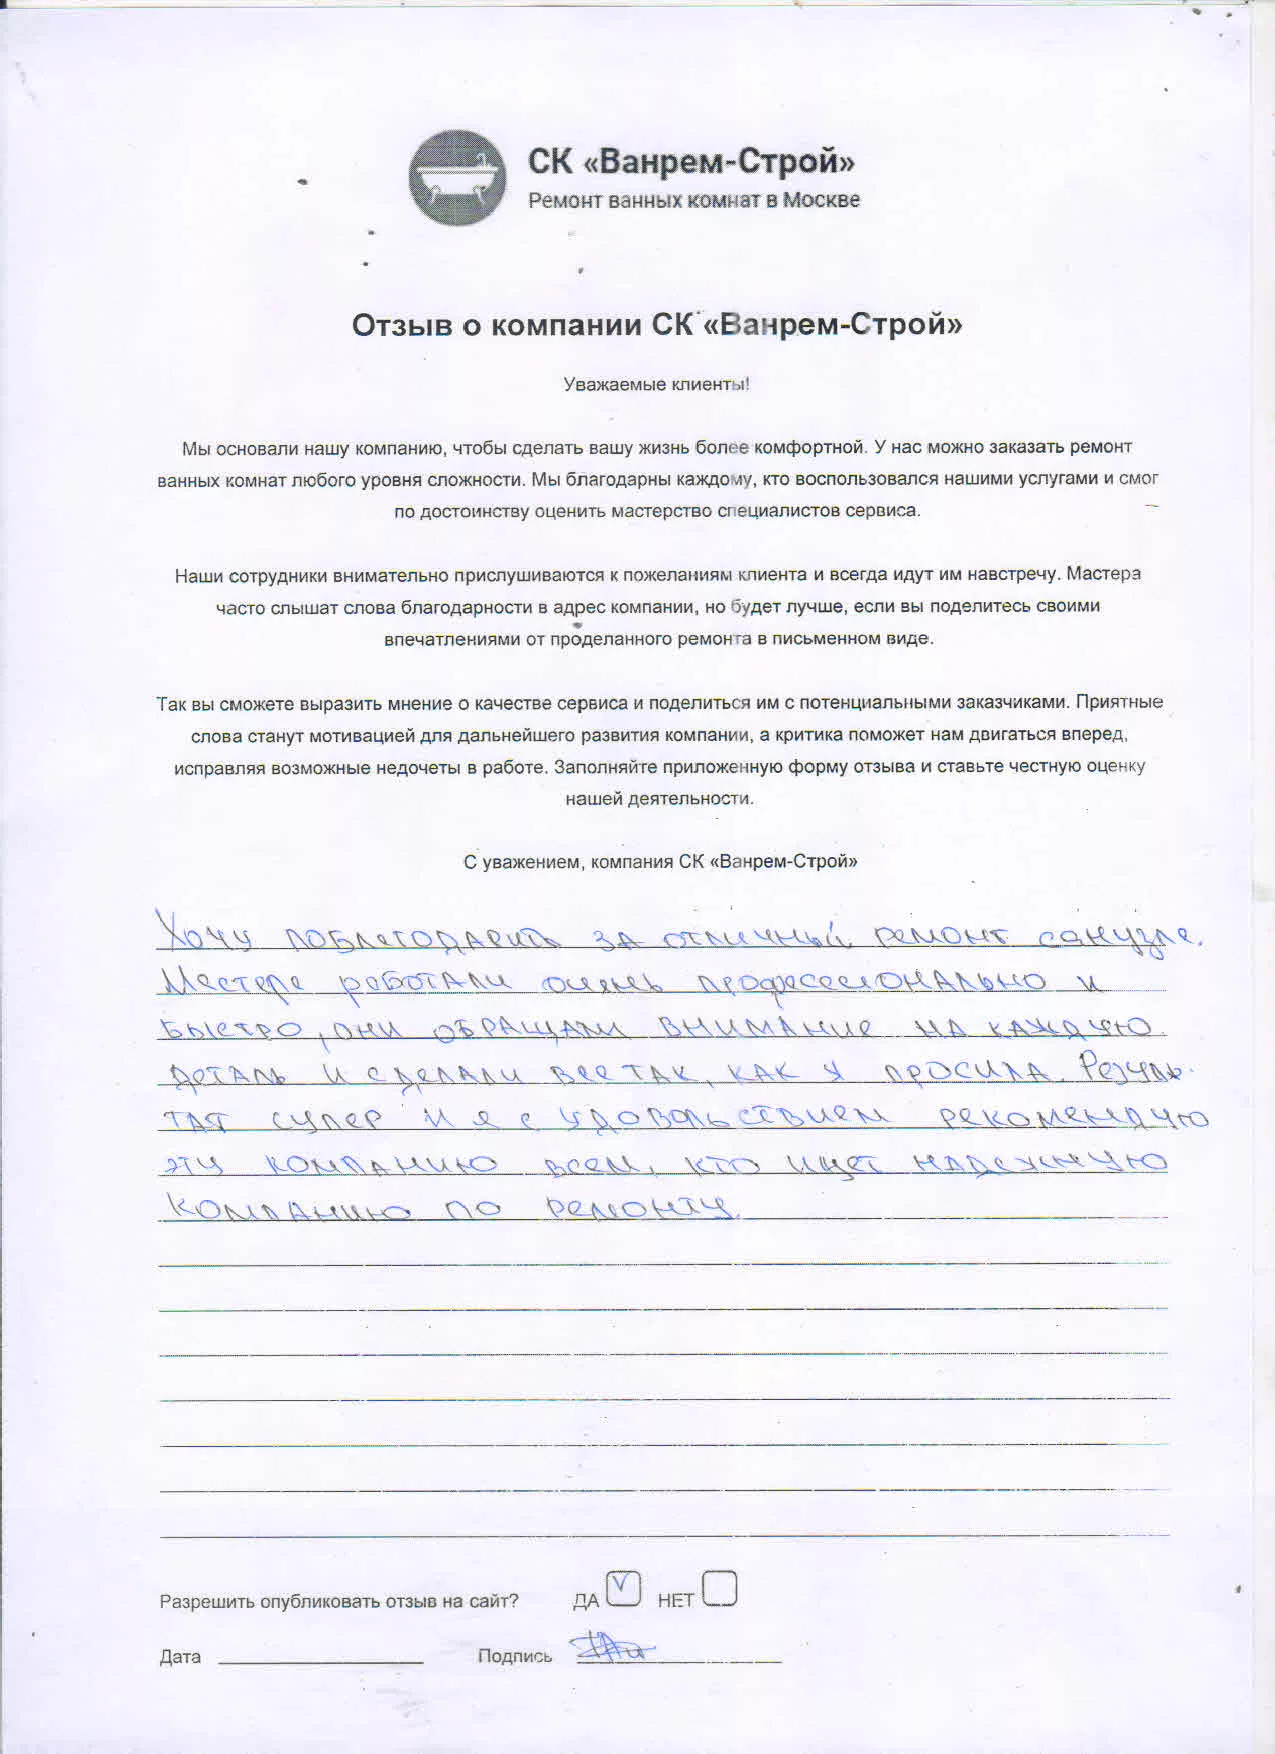 СК «Ванрем-Строй»
Ремонт ванных комнат в Москве
Отзыв о компании СК «Ванрем-Строй»
Уважаемые клиенты!
Мы основали нашу компанию, чтобы сделать вашу жизнь более комфортной. У нас можно заказать ремонт
ванных комнат любого уровня сложности. Мы благодарны каждому, кто воспользовался нашими услугами и смог
по достоинству оценить мастерство специалистов сервиса.
Наши сотрудники внимательно прислушиваются к пожеланиям клиента и всегда идут им навстречу. Мастера
часто слышат слова благодарности в адрес компании, но будет лучше, если вы поделитесь своими
впечатлениями от проделанного ремонта в письменном виде.
Так вы сможете выразить мнение о качестве сервиса и поделиться им с потенциальными заказчиками. Приятные
слова станут мотивацией для дальнейшего развития компании, а критика поможет нам двигаться вперед,
исправляя возможные недочеты в работе. Заполняйте приложенную форму отзыва и ставьте честную оценку
нашей деятельности.
С уважением, компания СК «Ванрем-Строй»
Хочу поблагодарить за отличный ремонт санузла.
Мастера работали очень профессионально и
быстро, они обращали внимание на каждую
деталь и сделали все так, как я просила. Резуль-
тат супер и я с удовольствием рекомендую
эту компанию всем, кто ищет надежную
компанию по ремонту.
Разрешить опубликовать отзыв на сайт? ДА V НЕТ
Дата Подпись